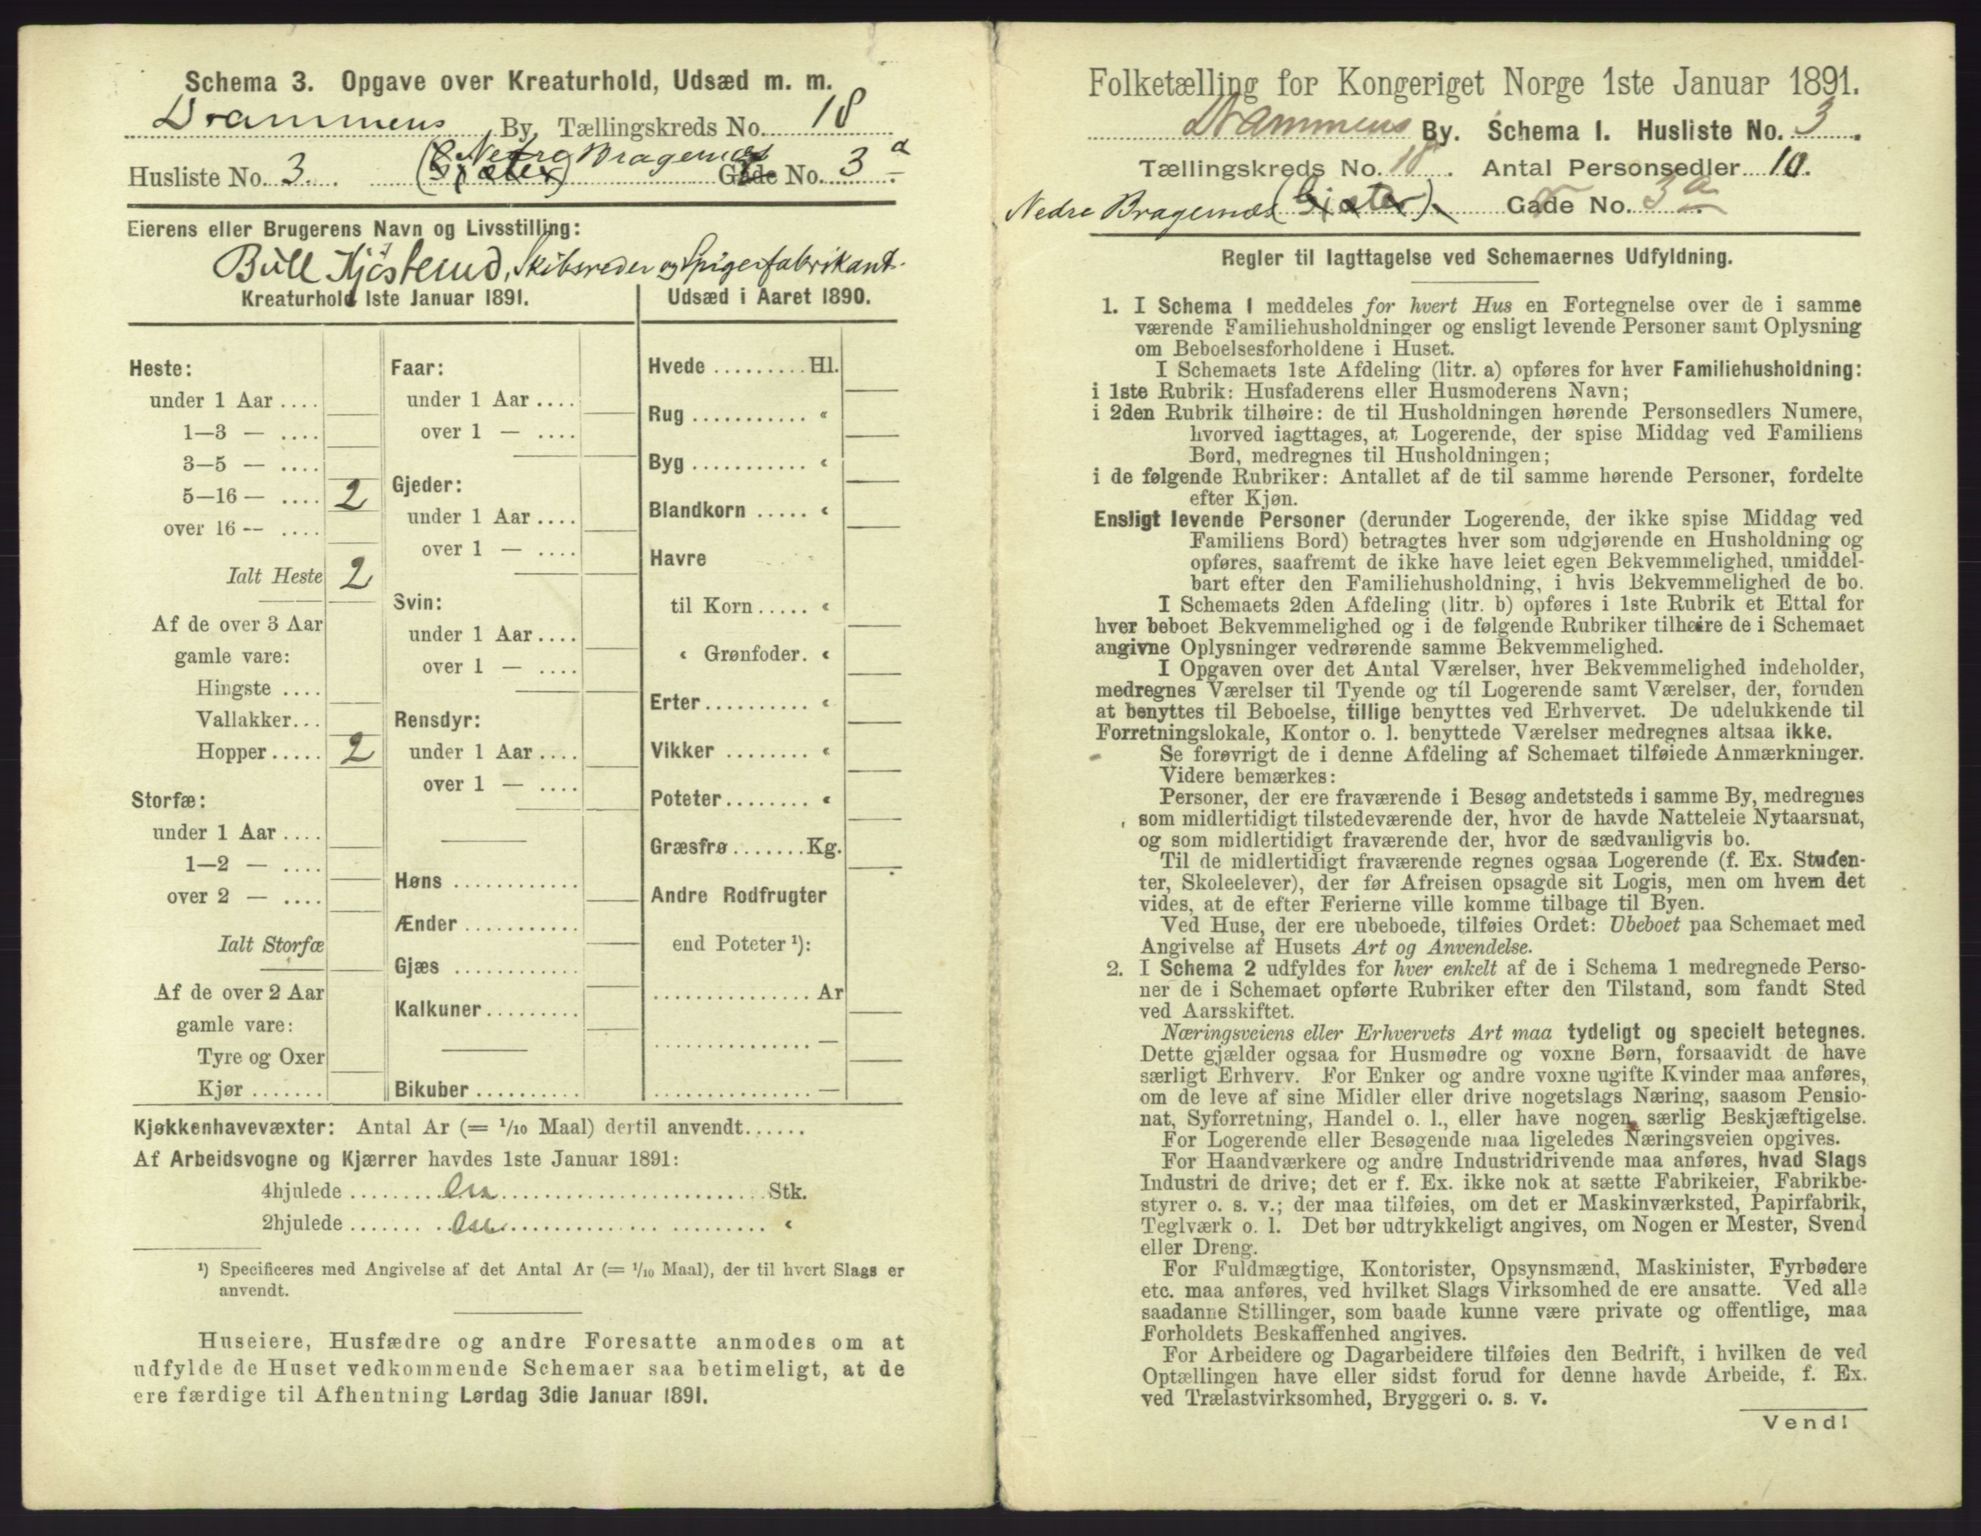 Schema 3. Opgave over Kreaturhold, Udsæd m. m.
Drammens By. Tællingskreds No. 18
Nedre Bragernæs
Husliste No. 3. Gade No. 3 a
Eierens eller Brugerens Navn og Livsstilling:
Büll Kjøsterud, Skibsreder og Spigerfabrikant.
Kreaturhold 1ste Januar 1891.
Heste:
under 1 Aar ....
1—3 — ....
3—5 — ....
5—16 — .... 2
over 16 — ....
Ialt Heste 2
Af de over 3 Aar
gamle vare:
Hingste ....
Vallakker...
Hopper ..... 2
Storfæ:
under 1 Aar ....
1—2 — ....
over 2 — ....
Ialt Storfæ
Af de over 2 Aar
gamle vare:
Tyre og Oxer
Kjør .......
Faar:
under 1 Aar ....
over 1 — ....
Gjeder:
under 1 Aar ....
over 1 — ....
Svin:
under 1 Aar ....
over 1 — ....
Rensdyr:
under 1 Aar ....
over 1 — ....
Høns ...........
Ænder ...........
Gjæs ...........
Kalkuner .........
Bikuber ..........
Udsæd i Aaret 1890.
Hvede ......... Hl.
Rug ........... «
Byg ........... «
Blandkorn ..... «
Havre
til Korn ..... «
« Grønfoder. «
Erter .......... «
Vikker ......... «
Poteter ........ «
Græsfrø ....... Kg.
Andre Rodfrugter
end Poteter ¹):
............... Ar
............... —
............... —
Kjøkkenhavevæxter: Antal Ar (= 1/10 Maal) dertil anvendt......
Af Arbeidsvogne og Kjærrer havdes 1ste Januar 1891:
4hjulede .......... Stk.
2hjulede .......... «
¹) Specificeres med Angivelse af det Antal Ar (= 1/10 Maal), der til hvert Slags er
anvendt.
Huseiere, Husfædre og andre Foresatte anmodes om at
udfylde de Huset vedkommende Schemaer saa betimeligt, at de
ere færdige til Afhentning Lørdag 3die Januar 1891.
Folketælling for Kongeriget Norge 1ste Januar 1891.
Drammens By. Schema I. Husliste No. 3.
Tællingskreds No. 18. Antal Personsedler 10.
Nedre Bragernæs Gade No. 3 a
Regler til Iagttagelse ved Schemaernes Udfyldning.
1. I Schema 1 meddeles for hvert Hus en Fortegnelse over de i samme
værende Familiehusholdninger og ensligt levende Personer samt Oplysning
om Beboelsesforholdene i Huset.
I Schemaets 1ste Afdeling (litr. a) opføres for hver Familiehusholdning:
i 1ste Rubrik: Husfaderens eller Husmoderens Navn;
i 2den Rubrik tilhøire: de til Husholdningen hørende Personsedlers Numere,
hvorved iagttages, at Logerende, der spise Middag ved Familiens
Bord, medregnes til Husholdningen;
i de følgende Rubriker: Antallet af de til samme hørende Personer, fordelte
efter Kjøn.
Ensligt levende Personer (derunder Logerende, der ikke spise Middag ved
Familiens Bord) betragtes hver som udgjørende en Husholdning og
opføres, saafremt de ikke have leiet egen Bekvemmelighed, umiddel-
bart efter den Familiehusholdning, i hvis Bekvemmelighed de bo.
I Schemaets 2den Afdeling (litr. b) opføres i 1ste Rubrik et Ettal for
hver beboet Bekvemmelighed og i de følgende Rubriker tilhøire de i Schemaet
angivne Oplysninger vedrørende samme Bekvemmelighed.
I Opgaven over det Antal Værelser, hver Bekvemmelighed indeholder,
medregnes Værelser til Tyende og til Logerende samt Værelser, der, foruden
at benyttes til Beboelse, tillige benyttes ved Erhvervet. De udelukkende til
Forretningslokale, Kontor o. l. benyttede Værelser medregnes altsaa ikke.
Se forøvrigt de i denne Afdeling af Schemaet tilføiede Anmærkninger.
Videre bemærkes:
Personer, der ere fraværende i Besøg andetsteds i samme By, medregnes
som midlertidigt tilstedeværende der, hvor de havde Natteleie Nytaarsnat,
og som midlertidigt fraværende der, hvor de sædvanligvis bo.
Til de midlertidigt fraværende regnes ogsaa Logerende (f. Ex. Studen-
ter, Skoleelever), der før Afreisen opsagde sit Logis, men om hvem det
vides, at de efter Ferierne ville komme tilbage til Byen.
Ved Huse, der ere ubeboede, tilføies Ordet: Ubeboet paa Schemaet med
Angivelse af Husets Art og Anvendelse.
2. I Schema 2 udfyldes for hver enkelt af de i Schema 1 medregnede Perso-
ner de i Schemaet opførte Rubriker efter den Tilstand, som fandt Sted
ved Aarsskiftet.
Næringsveiens eller Erhvervets Art maa tydeligt og specielt betegnes.
Dette gjælder ogsaa for Husmødre og voxne Børn, forsaavidt de have
særligt Erhverv. For Enker og andre voxne ugifte Kvinder maa anføres,
om de leve af sine Midler eller drive nogetslags Næring, saasom Pensio-
nat, Syforretning, Handel o. l., eller have nogen særlig Beskjæftigelse.
For Logerende eller Besøgende maa ligeledes Næringsveien opgives.
For Haandværkere og andre Industridrivende maa anføres, hvad Slags
Industri de drive; det er f. Ex. ikke nok at sætte Fabrikeier, Fabrikbe-
styrer o. s. v.; der maa tilføies, om det er Maskinværksted, Papirfabrik,
Teglværk o. l. Det bør udtrykkeligt angives, om Nogen er Mester, Svend
eller Dreng.
For Fuldmægtige, Kontorister, Opsynsmænd, Maskinister, Fyrbødere
etc. maa anføres, ved hvilket Slags Virksomhed de ere ansatte. Ved alle
saadanne Stillinger, som baade kunne være private og offentlige, maa
Forholdets Beskaffenhed angives.
For Arbeidere og Dagarbeidere tilføies den Bedrift, i hvilken de ved
Optællingen have eller sidst forud for denne havde Arbeide, f. Ex.
ved Trælastvirksomhed, Bryggeri o. s. v.
Vend!